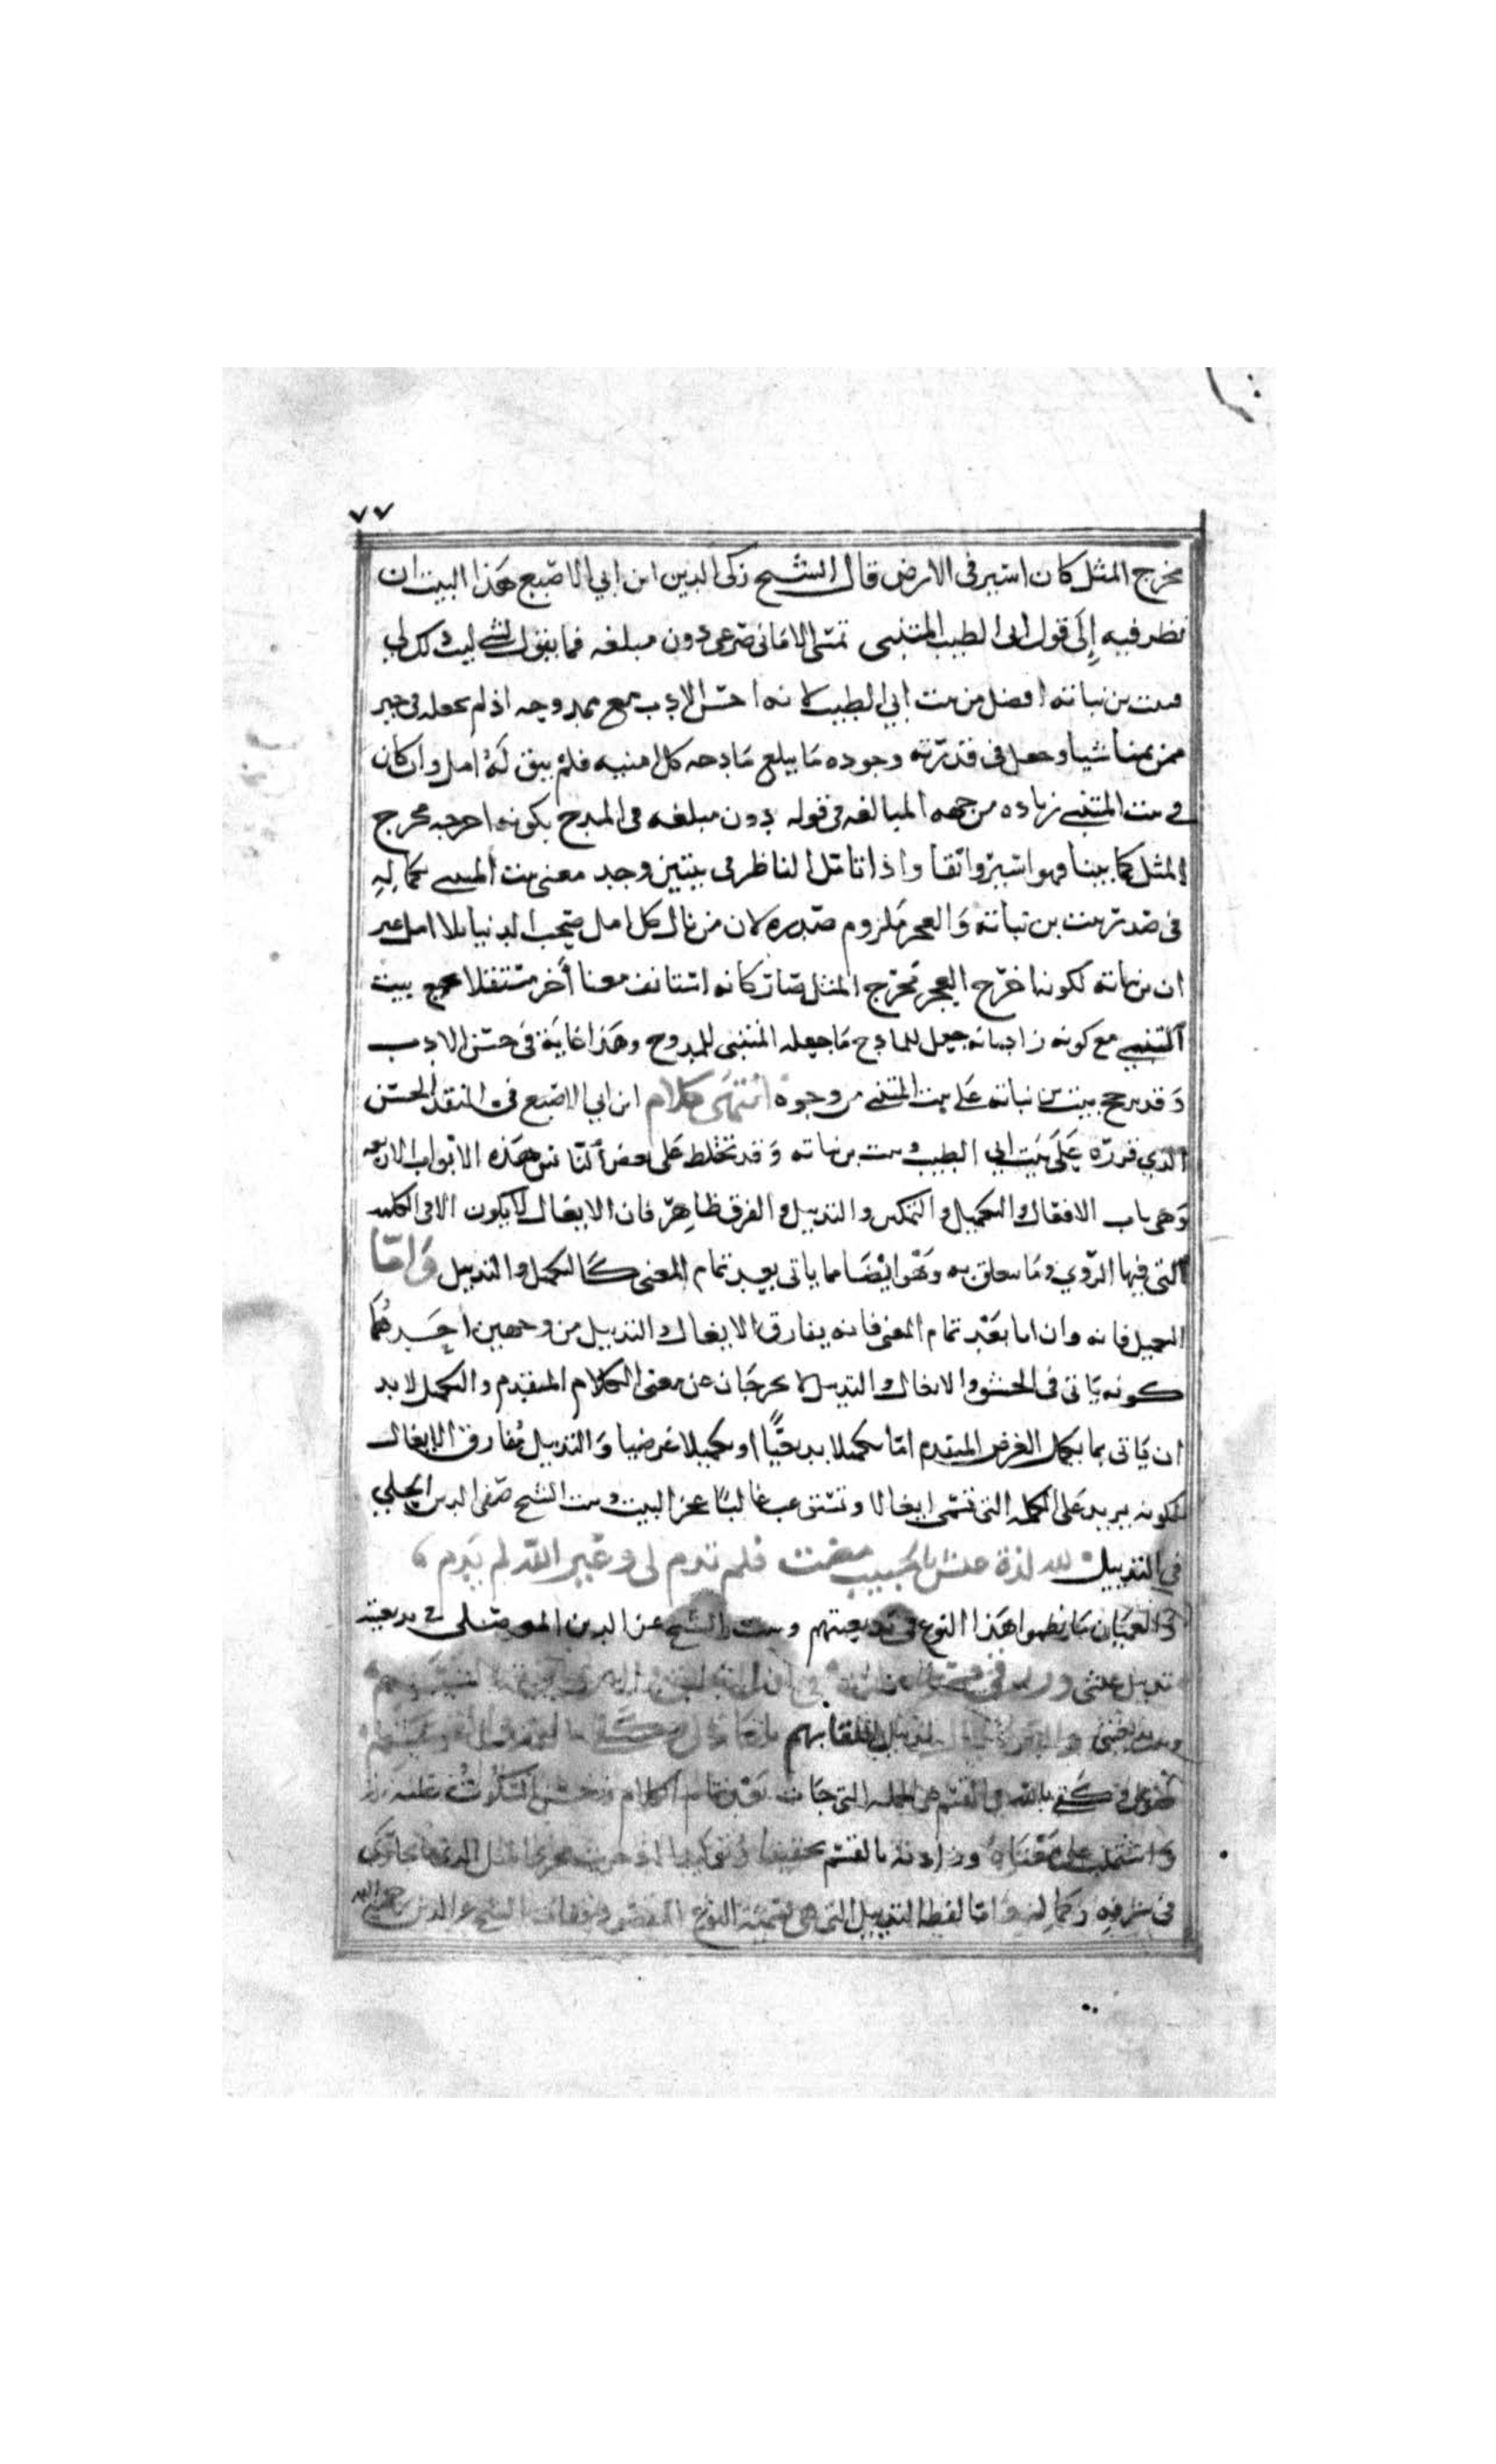 ٧٧
مخرج المثل كان اسير في الارض قال الشيخ زكي الدين ابن ابي الاصبع هذا البيت ان
نظر فيه إلى قول ابي الطيب المتنبي تمسى الاماني صرعى دون مبلغه فما يقول لشي ليت ذلك لي
فبيت بن نباته افضل من بيت ابي الطيب لانه احسن الادب مع ممدوحه اذ لم يجعله في حيز
ممن يمنا شيا وجعل في قدرته وجوده ما يبلغ مادحه كل امنيه فلم يبق له امل وان كان
في بيت المتنبي زياده من جهه المبالغه في قوله دون مبلغه في المدح بكونه اخرجه مخرج
المثل كما بينا فهو اسير واتقا واذا تامل الناظر في بيتين وجد معنى بيت المتنبي بكماله
في صدر بيت بن نباته والعجز ملزوم صدره لان من نال كل امل صحب الدنيا بلا امل غير
ان بن نباته لكونه اخرج العجز مخرج المثل صار كانه استانف معنا أخر مستقلا بيت
المتنبي مع كونه زاد بانه جعل للمادح ما جعله المتنبي للممدوح وهذا غاية في حسن الادب
وقد يرجح بيت بن نباته على بيت المتنبي من وجوه انتهى كلام ابن ابي الاصبع في النقد الحسن
الذي قرره على بيت ابي الطيب وبيت بن نباته وقد تختلط على بعض الناس هذه الابواب الاربعه
وهي باب الايغال والتكميل والتمكين والتذييل والفرق ظاهر فان الايغال لا يكون الا في الكلمه
التي فيها الروي وما يتعلق به وهو ايضا مما ياتي بعد تمام المعنى كالتكميل والتذييل واما
التكميل فانه وان اتا بعد تمام المعنى فانه يفارق الايغال والتذييل من وجهين احدهما
كونه ياتي في الحشو والايغال والتذييل لا يخرجان عن معنى الكلام المتقدم والتكميل لابد
ان ياتي بما يكمل الغرض المتقدم اما تكميلا بديعيا او تكميلا عرضيا والتذييل مفارق الايغال
لكونه يزيد على الكلمه التي تسمى ايغالا وتستوعب غالبا عجز البيت وبيت الشيخ صفي الدين الحلي
في التذييل لله لذة عيش بالحبيب مضت فلم تدم لي وغير الله لم يدم
والعميان ما نظموا هذا النوع في بديعيتهم وبيت الشيخ عز الدين الموصلي في بديعيته
تذييل عيشي
وبيت بديعيتي والله تذييل لقابهم
فقولي كفى بالله في القسم هي الجمله التي جات بعد تمام الكلام وحسن السكوت عليه
واشتملت على معناه وزادته بالقسم تحقيقا وتوكيدا
في ظرفه وكماله واما لفظ التذييل التي هي تسمية النوع المقصود الشيخ عز الدين رحمه الله